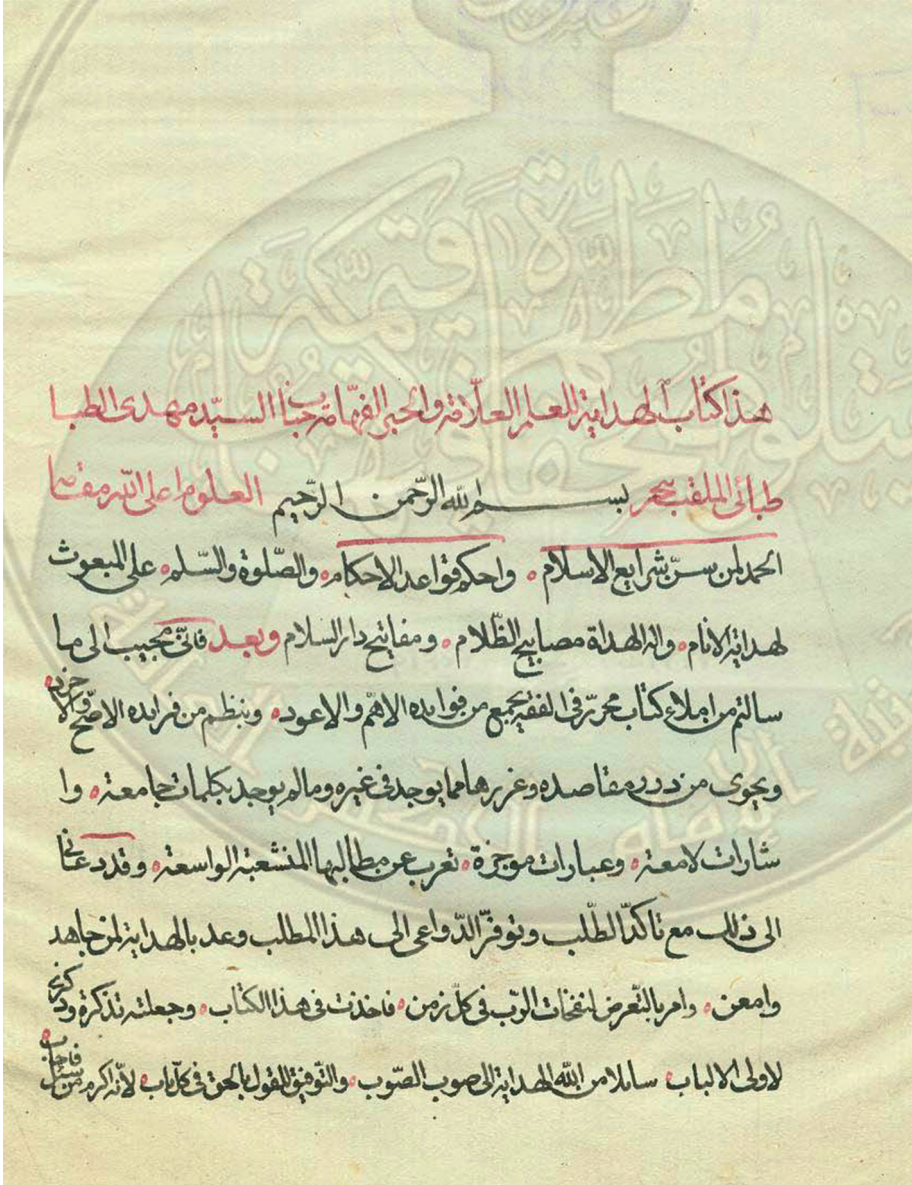 هذا كتاب الهداية للعلم العلّامة والحبر الفهّامة جناب السيّد مهدى الطبا
طبائى الملقب ببحر بســم الله الرّحمن الرّحيم العلوم اعلى الله مقامه
الحمد لمن سنّ شرايع الاسلام ه واحكم قواعد الاحكام ه والصّلوة والسّلم ه على المبعوث
لهداية الانام ه واله الهداة مصابيح الظّلام ه ومفاتيح دار السلام وبعد فانّى مجيب الى ما
سالتم من املاء كتاب محرّر فى الفقه يجمع من فوايده الاهمّ والاعود ه وينظم من فرايده الاصحّ والاجود ه
ويحوى من درر مقاصده وغررها مما يوجد فى غيره وما لم يوجد بكلمات جامعة ه وا
شارات لامعة ه وعبارات موجزة ه تعرب عن مطالبها المنشعبة الواسعة ه وقد دعانا
الى ذلك مع تاكّد الطّلب وتوفّر الدّواعى الى هذا المطلب وعد بالهداية لمن جاهد
وامعن ه وامر بالتّعرض لنفحات الرّب فى كلّ زمن ه فاخذت فى هذا الكتاب ه وجعلته تذكرة وذكرى
لاولى الالباب ه سايلا من الله الهداية الى صوب الصّوب ه والتّوفيق للقول بالحق فى كلّ باب ه لانّه اكرم من سئل فاجاب ه